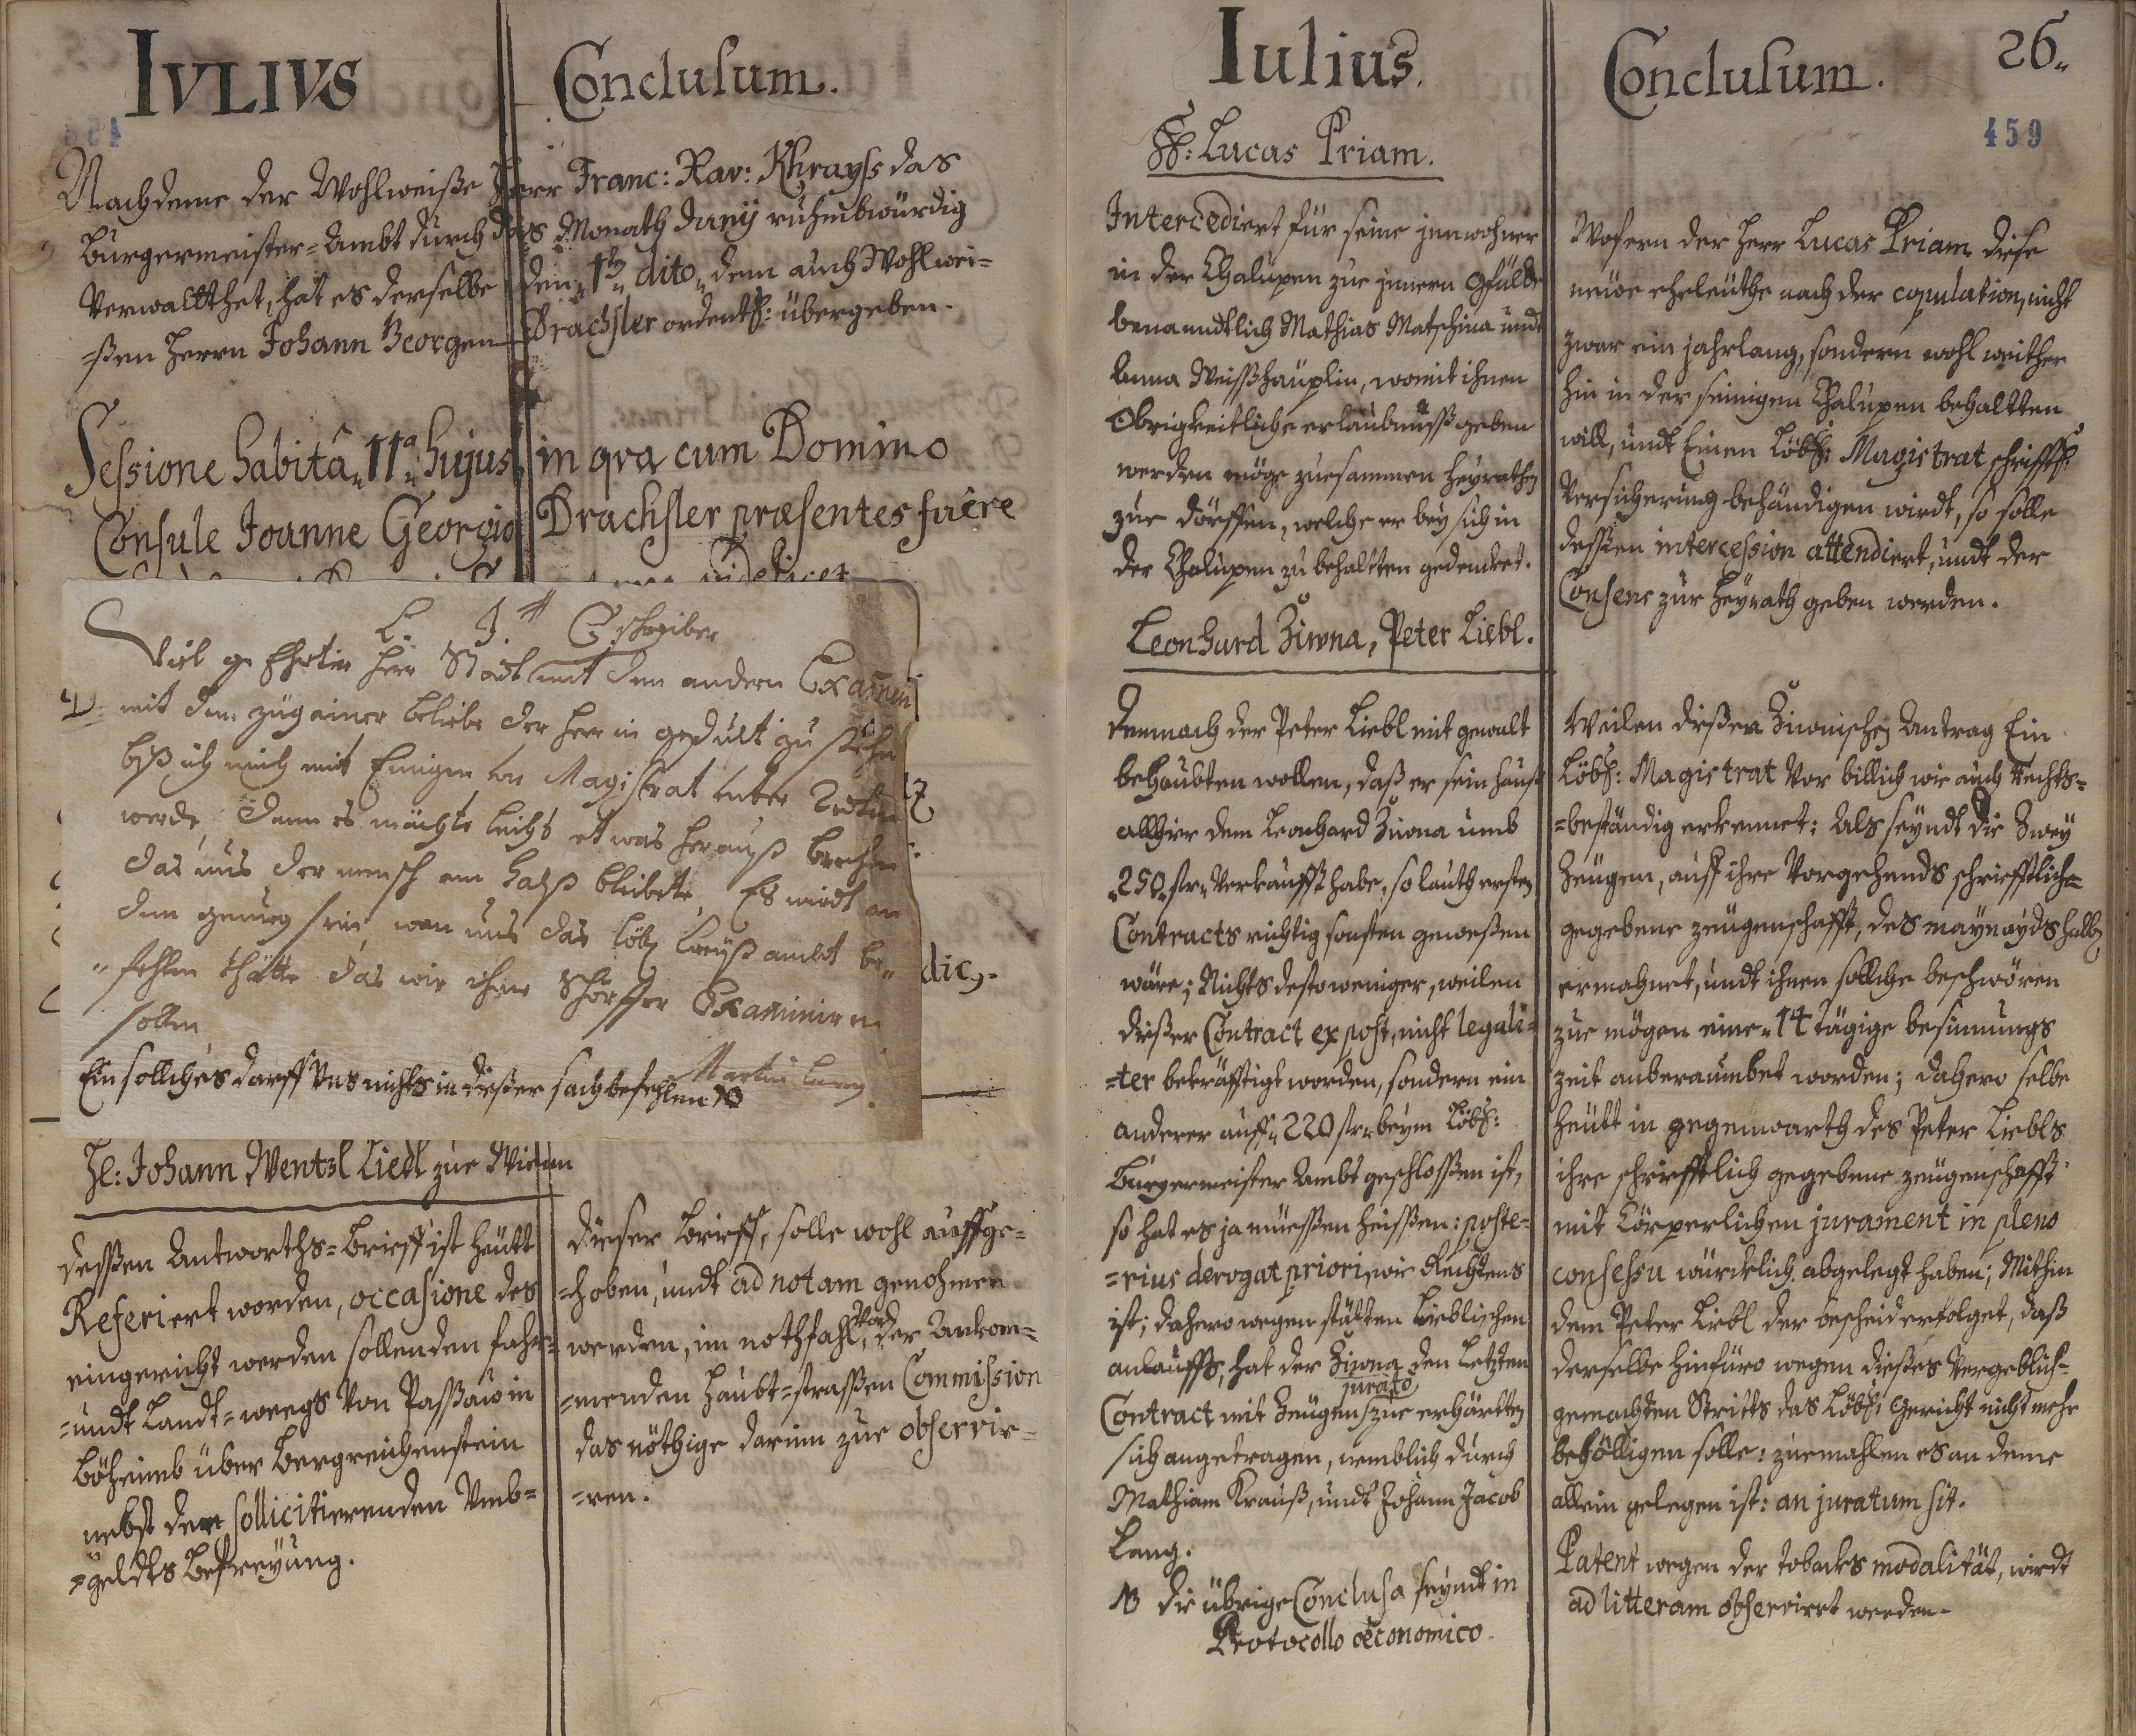 IVLIVS
Conclusum.
Nachdeme der Wohlweiße Herr Franc: Xav: Khrayss das
Burgermeister=Ambt durch das Monath Junij ruhmbwürdig
Verwaltthet, hat es derselbe den 1ten dito, dem auch Wohlwei=
=ßen Herrn Johann Georgen Drachsler ordentl: übergeben.
Sessione habitâ 11a hujus, in qva cum Domino
Consule Joanne Georgio Drachsler præsentes fuêre
videlicet
Viel geEhrter Herr Stadtschreiber
mit dem andern Examini
mit dem zügainer beliebe der Herr in gedult zu stehn
biß ich mich mit Einigen von Magistrat unter Redten
werde, dann es möchte leicht etwas herauß brechen
das uns der mensch am Halß bleibete, Es wirdt an
dem genueg sein, wan uns das löbl Creyßambt be=
=fehlen thätte das wir ihne schörffer Examiniren
sollen
Martin Lang
Ein solliches darff Uns nichts in dießer sach befehlen NB
dic.
H: Johann Wentzl Liedl zue Wienn
deßen Antworths=Brieff ist heütt
Referiert worden, occasione des
eingericht werden sollenden fahr=
=undt Landt=weegs von Paßaw in
Böheimb über Bergreichenstein
nebst der sollicitierenden Umb=
=geldts Befreyung.
dieser brieff, solle wohl auffge=
=hoben, undt ad notam genohmen
werden, im nothfahl, vor der Ankom=
=menden Haubt=strassen Commission
das nöthige darinn zue observie=
=ren.
Iulius.
Conclusum.
26.
459
H: Lucas Priam.
Intercediert für seine innwohner
in der Chalupen zue innern Gfilde
benanndtlich Mathias Matschina undt
Anna Weisshäuplin, womit ihnen
Obrigkeitliche erlaubnuss geben
werden möge zuesammen heyrathen
zue dörffen, welche er bey sich in
der Chalupen zu behaltten gedencket.
Wofern der Herr Lucas Priam diese
neüe eheleüthe nach der copulation, nicht
zwar ein jahrlang, sondern wohl weither
hin in der seinigen Chalupen behaltten
will, undt Einen Löbl: Magistrat schrifftl:
Versicherung behändigen wirdt, so solle
dessen intercession attendiert, undt der
Consens zur Heyrath geben werden.
Leonhard Ziwna, Peter Liebl.
Demnach der Peter Liebl mit gewalt
behaubten wollen, daß er sein hauß
allhier dem Leonhard Ziwna umb
250 fl: Verkaufft habe, so lauth ersten
Contracts richtig sonsten geweßen
wäre; Nichts destoweniger, weilen
dießer Contract ex post, nicht legali=
=ter bekräfftigt worden, sondern ein
anderer auff 220 fl: beym Löbl:
Burgermeister Ambt geschloßen ist,
so hat es ja müeßen heißen: poste=
=rius derogat priori, wie Rechtens
ist; dahero wegen stätten Lieblischen
anlauffs, hat der Ziwna den Letzten
Contract mit Zeügen jurato zue erhärtten
sich angetragen, nemblich durch
Mathiam Krauß, undt Johann Jacob
Lang.
NB die übrige Conclusa seyndt in
Protocollo œconomico.
Weilen dießen Ziwnischen Antrag Ein
Löbl: Magistrat vor billich wie auch Rechts=
=beständig erkennet: Als seyndt die Zwey
Zeügen, auff ihre Vorgehends schrifftlich=
gegebene zeügenschafft, des maynayds halben
ermahnet, undt ihnen solliche beschwören
zue mögen eine 14 tägige besinnungs
zeit anberaumbet worden; dahero selbe
heütt in gegenwarth des Peter Liebls
ihre schrifftlich gegebene zeügenschafft
mit Cörperlichen jurament in pleno
consessu würcklich abgelegt haben; Mithin
dem Peter Liebl der bescheid erfolget, daß
derselbe hinfüro wegen dießes vergeblich=
gemachten Stritts das Löbl: Gericht nicht mehr
behölligen solle: zuemahlen es an deme
allein gelegen ist: an juratum sit.
Patent wegen der tobacks modalität, wirdt
ad litteram observirt werden.